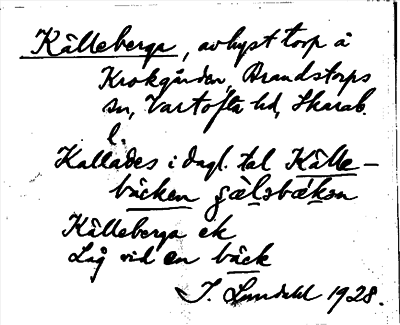 Källeberga, avhyst torp å
Krokgården, Brandstorps
sn, Vartofta hd, Skarab.
l.
Kallades i dagl. tal Källe-
bäcken gälsbækən
Källeberga ek
Låg vid en bäck
J. Lundahl 1928.